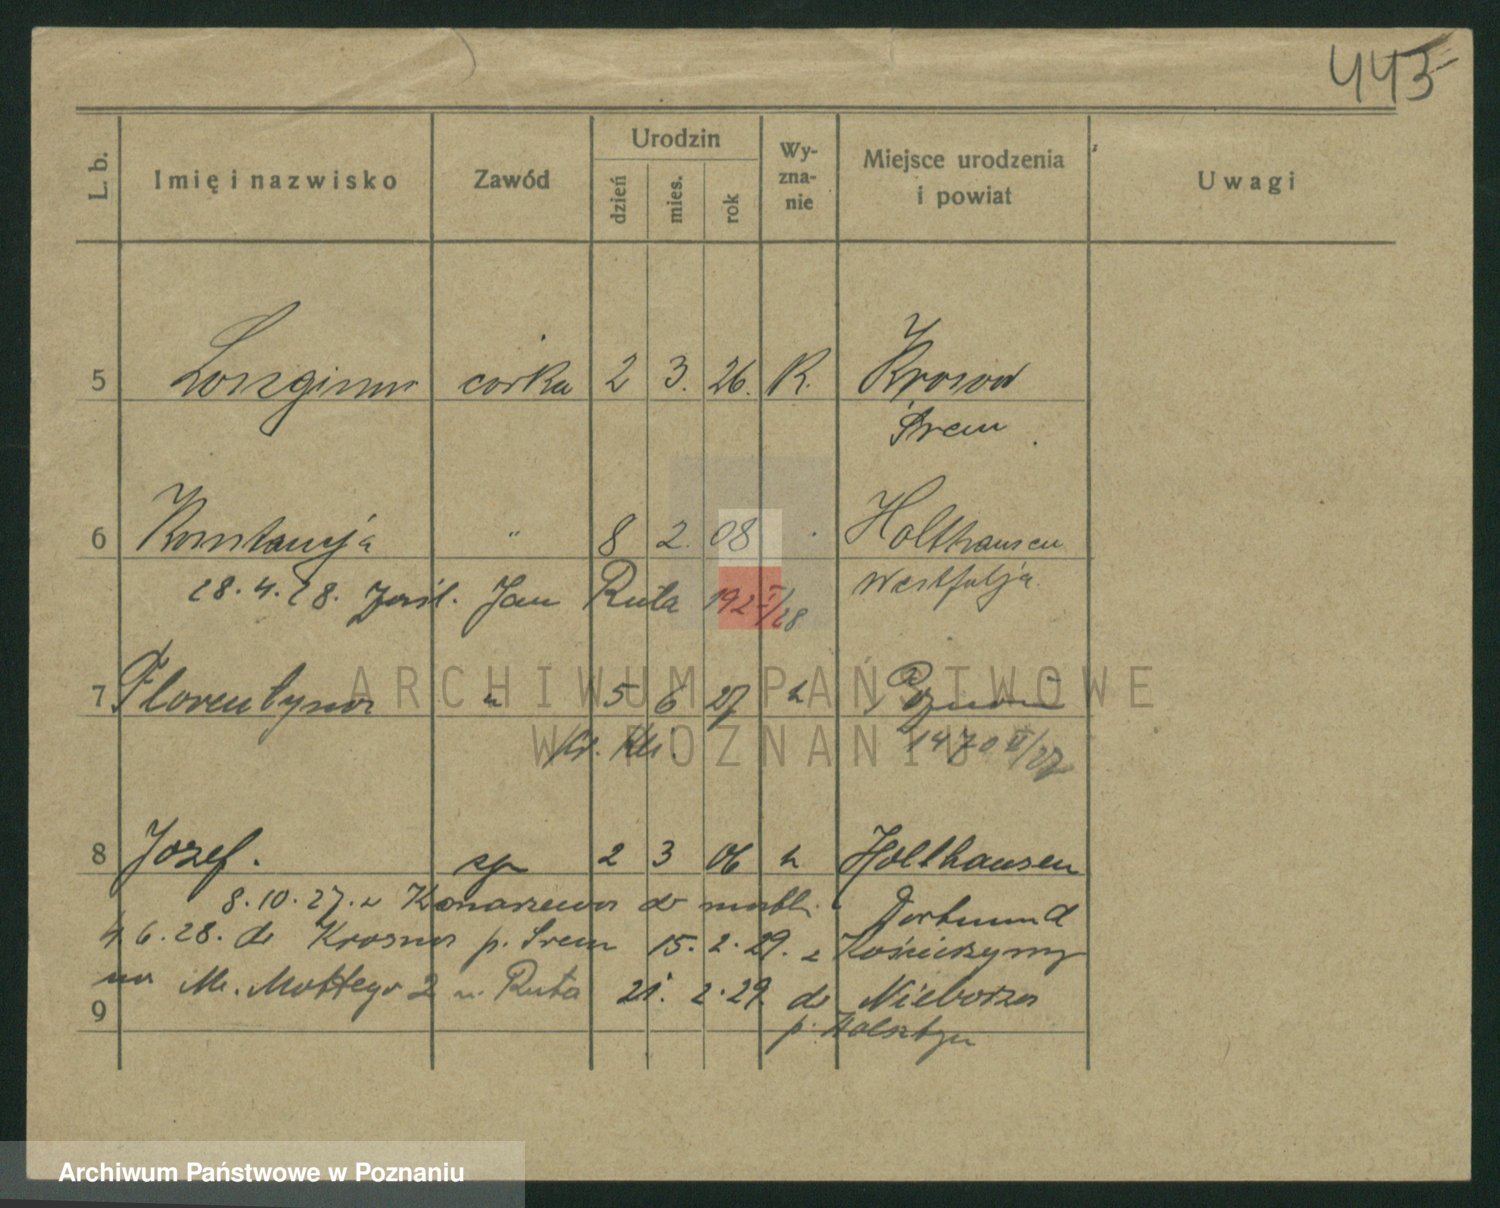 443
L. b. Imię i nazwisko Zawód Urodzin dzień mies. rok Wy-zna-nie Miejsce urodzenia i powiat Uwagi
5 Longina córka 2 3. 26. R. Krosno
Śrem
6 Konstancja " 8 2. 08 Holthausen
28.4.28. Jan Ruta 192 I/28 Westfalja
7 Florentyna " 5 6 27 Poznań
1470 II/27
8 Jozef. 2 3 06 Holthausen
8.10.27. z Konarzewa do Dortmund
4.6.28. do Krosna p. Śrem 15.2.29. z Kościerzyny
na M. Mottego 2 u. Ruta 21. 2.29. do
9
p. Wolsztyn
ARCHIWUM PAŃSTWOWE
W POZNANIU
Archiwum Państwowe w Poznaniu